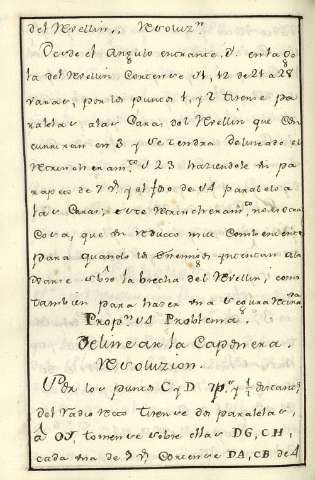 del Revellin. Resoluz.n
Desde el Angulo entrante. en la Go
la del Revellin Cortense 11, 12 de 21 a 28
varas, por los puntos 1, y 2 tirense pa
ralelas a las Caras del Revellin que con
curriran en 3 y se tendra delineado el
Atrincheram.to 1 2 3 haziendole un pa
rapeto de 7 y el foso de 14 paralelo a
las Caras; este Atrincheram.to no es otra
Cosa, que un reducto mui Combeniente
para quando los Enemigos intentan
sobre la brecha del Revellin; como
tambien para hazer una segura
Prop.n 14 Problema.
Delinear la Caponera.
Resoluzion.
los puntos C y D y 1/2 distantes
del Radio Recto tirense dos paralelas,
â OS, tomense sobre ellas DG, CH,
cada una de Cortense DA, CB de 4